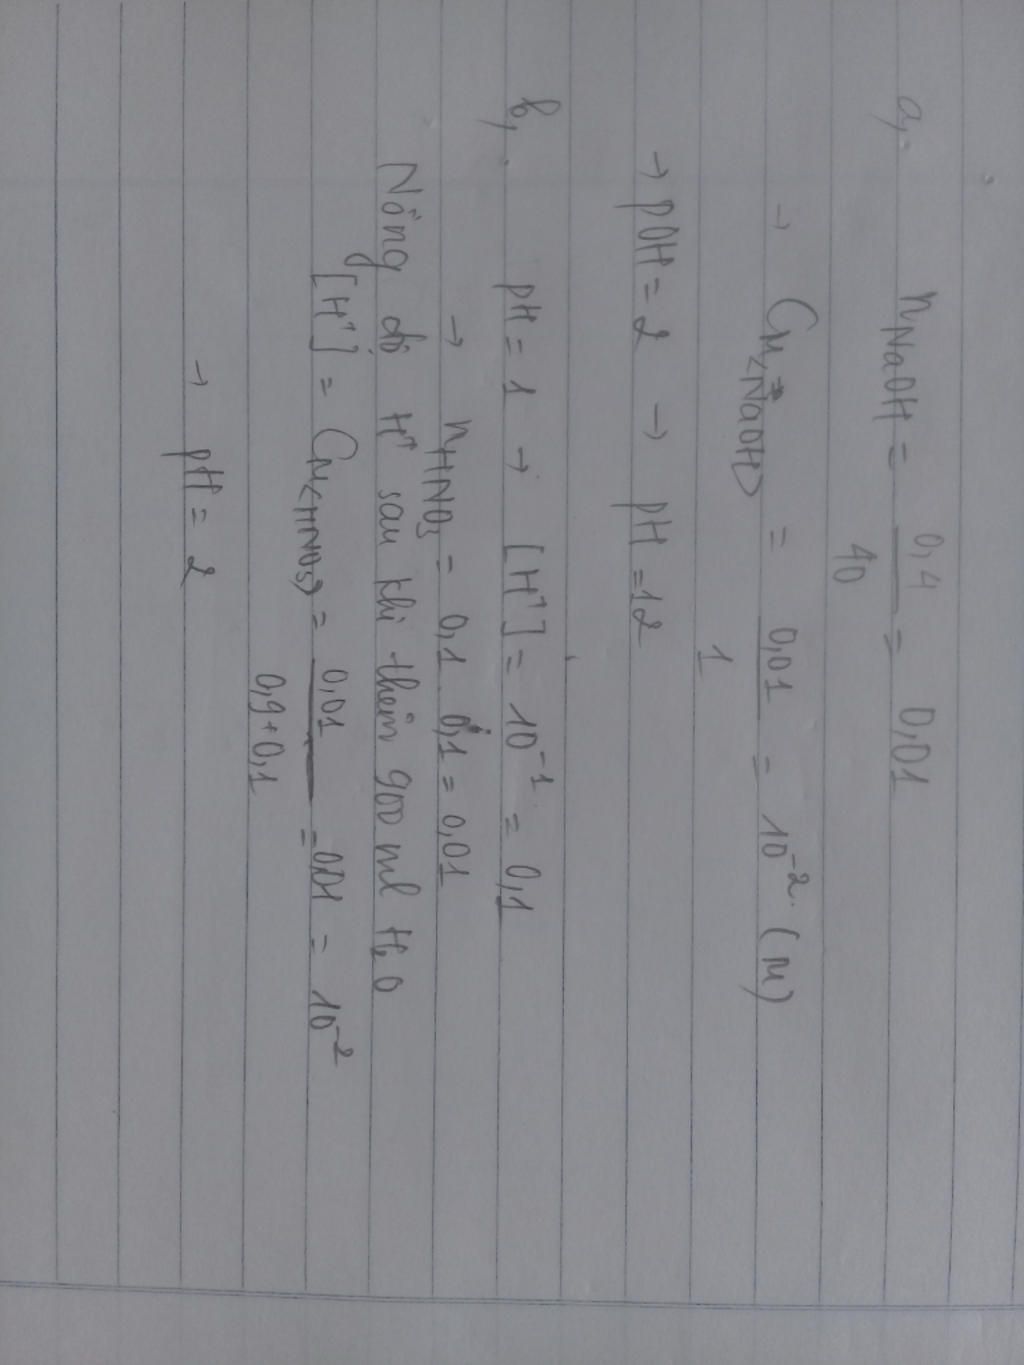 a, nNaOH = 0,4/40 = 0,01
→ CM(NaOH) = 0,01/1 = 10⁻² (M)
→ pOH = 2 → pH = 12
b, pH = 1 → [H⁺] = 10⁻¹ = 0,1
→ nHNO₃ = 0,1 . 0,1 = 0,01
Nồng độ H⁺ sau khi thêm 900 ml H₂O
[H⁺] = CM(HNO₃) = 0,01/0,9+0,1 = 0,01 = 10⁻²
→ pH = 2